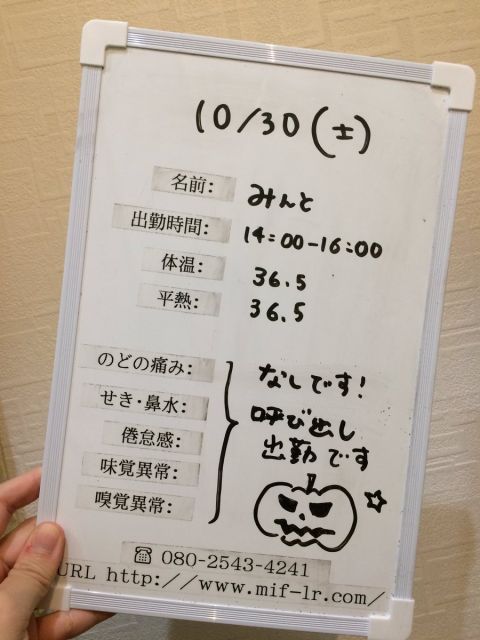 10/30(土)
名前: みんと
出勤時間: 14:00-16:00
体温: 36.5
平熱: 36.5
のどの痛み: なしです!
せき・鼻水: 呼び出し
倦怠感: 出勤です
味覚異常:
嗅覚異常:
☎ 080-2543-4241
URL http://www.mif-lr.com/